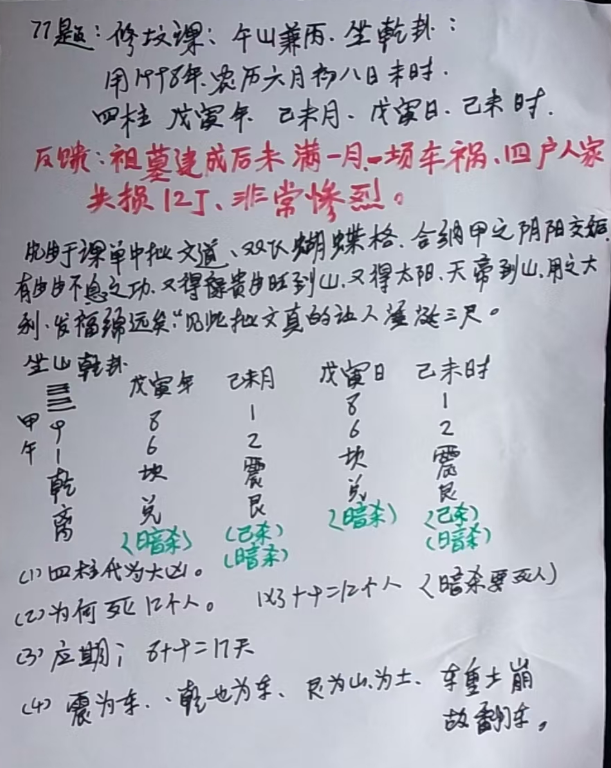 77题：修坟课：午山兼丙．坐乾卦：
用1998年．农历六月初八日未时．
四柱 戊寅年、己未月、戊寅日、己未时．
反馈：祖墓建成后未满一月、一场车祸、四户人家
失损12丁、非常惨烈。
由于课单中批文道、双飞蝴蝶格．合纳甲之阴阳交媾
有生生不息之功．又得禄贵生旺到山、又得太阳、天帝到山，用之大
利、发福绵远矣："见此批文真的让人垂涎三尺。
坐山乾卦 戊寅年 己未月 戊寅日 己未时
8 1 8 1
甲 9 6 2 6 2
午 1 坎 震 坎 震
乾 兑 艮 兑 艮
离 (暗杀) (己杀) (暗杀) (己杀)
(暗杀) (暗杀)
(1) 四柱代为大凶。
(2) 为何死12个人。 1×3+9=12个人 (暗杀要死人)
(3) 应期； 8+9=17天
(4) 震为车、乾也为车、艮为山、为土、车重土崩
故翻车。